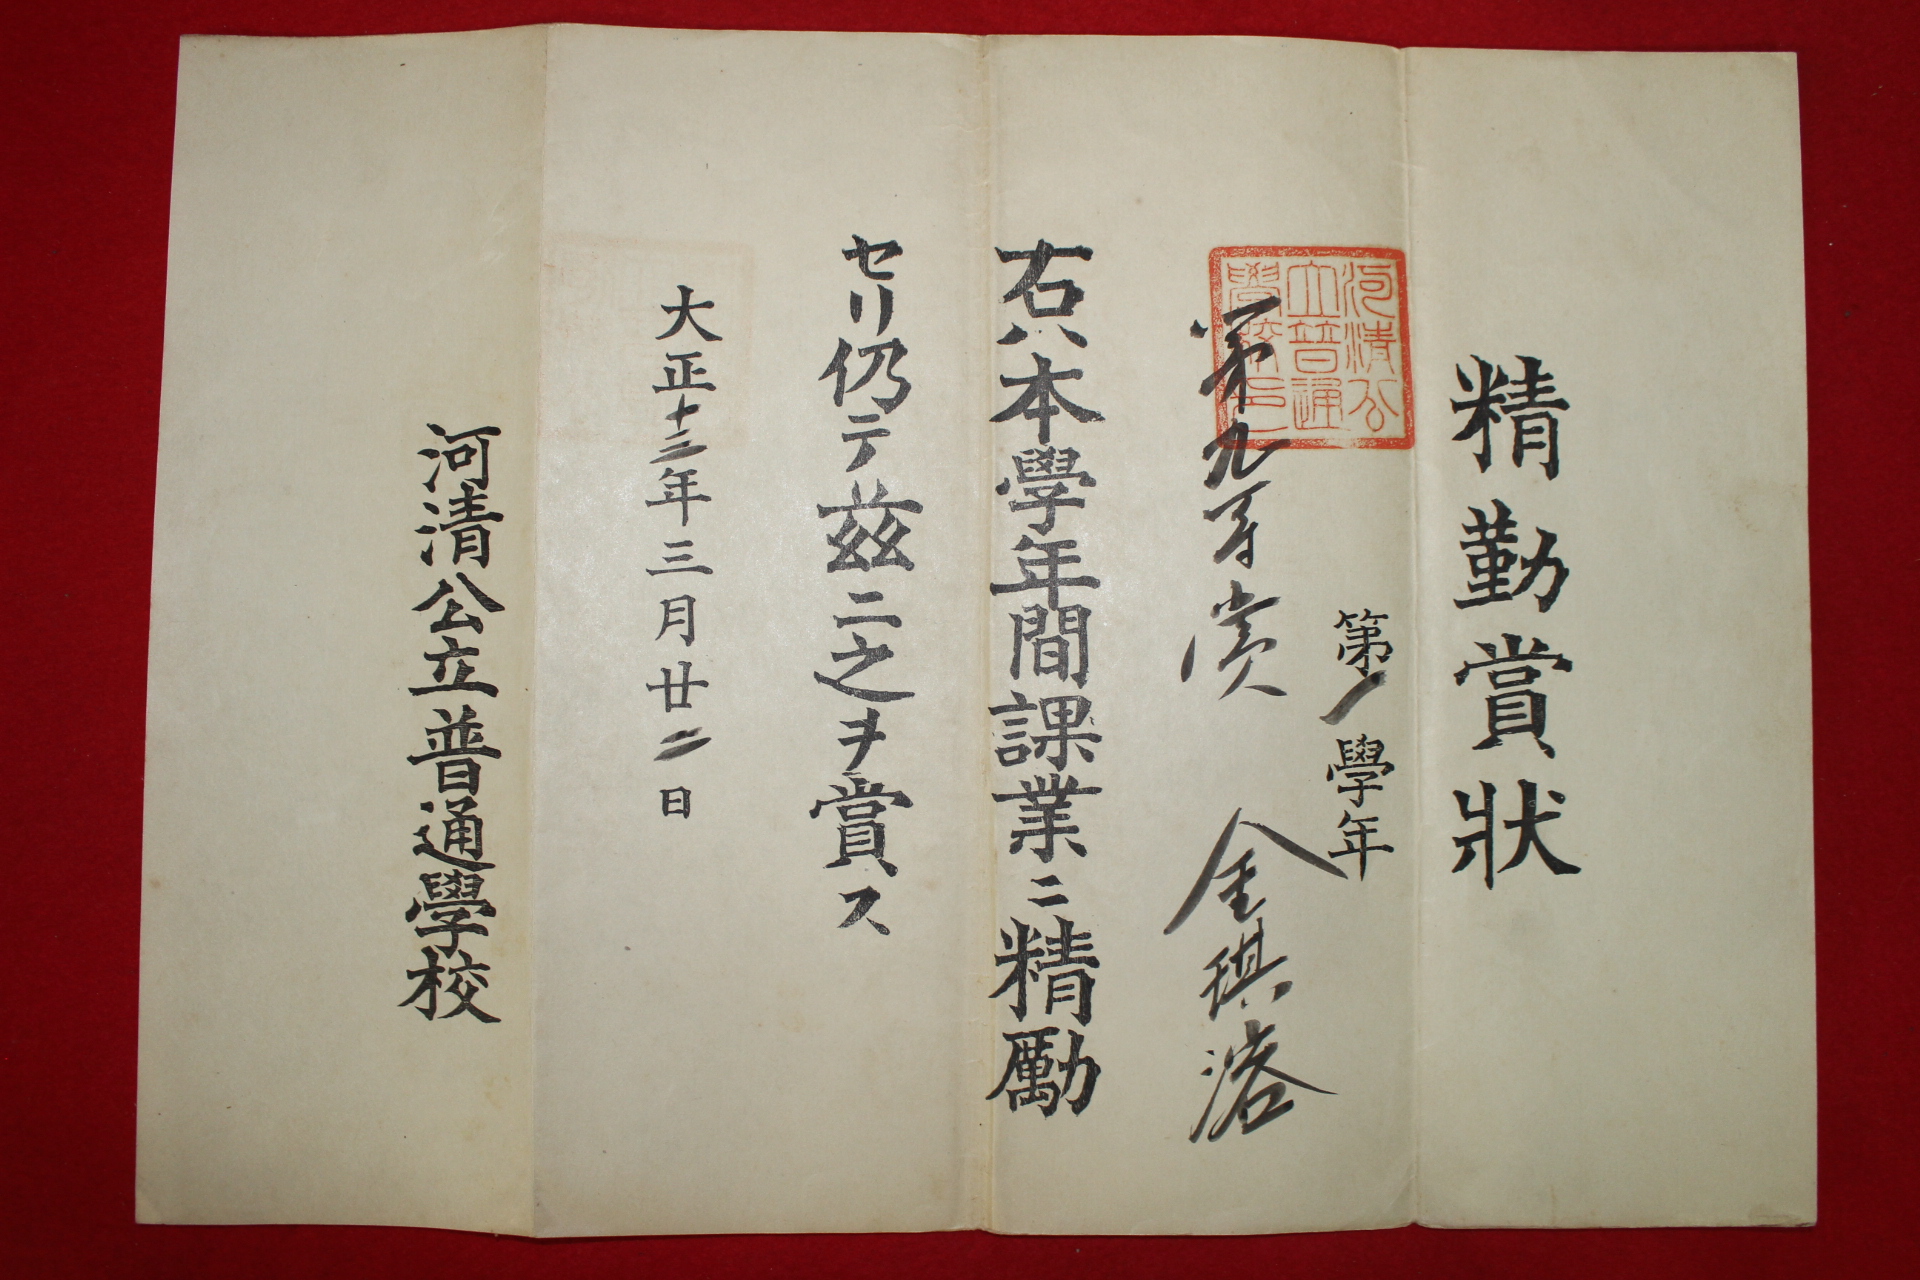 精勤賞狀
第一學年
第九等賞 金琪濬
河清公
立普通
學校印
右ハ本學年間課業ニ精勵
セリ仍テ茲ニ之ヲ賞ス
大正十三年三月廿二日
河清公立普通學校